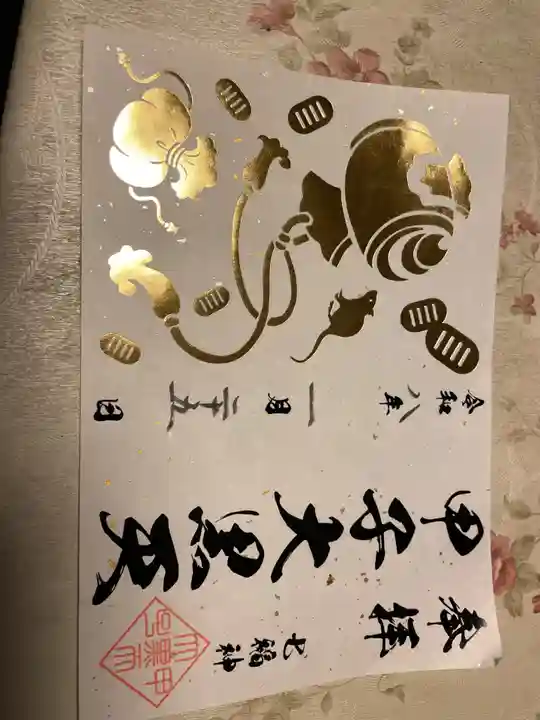 奉拝　七福神
甲子大黒天
令和八年一月二十五日